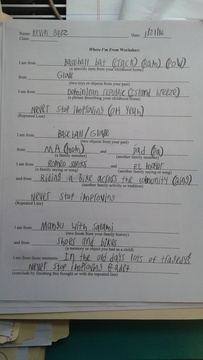 Name Kevin Baez Date 1/21/16
Class
Where I'm From Worksheet
I am from Baseball bat (crack) (bam) (pow)
(a specific item from your childhood home)
from Glove
(two toys or objects from your past)
I am from Dominican republic (island breeze)
(a phrase describing your childhood home)
Never Stop improving (oh yeah)
(Repeated Line)
I am from Baseball / Glove
(two objects from your past)
from MA (mom) and Dad (Pa)
(a family member) (another family member)
I am from Romeo santos and El
(a family saying or song) (another family saying or song)
and from Riding a Bike across the community
(another family activity or tradition)
Never Stop improving
(Repeated Line)
I am from Mangu with Salami
(two foods from your family history)
and from Shoes and bikes
(a memory or object you had as a child)
I am from those moments In the old days lots of
Never Stop improving
(conclude by finishing this thought or with the repeated line)